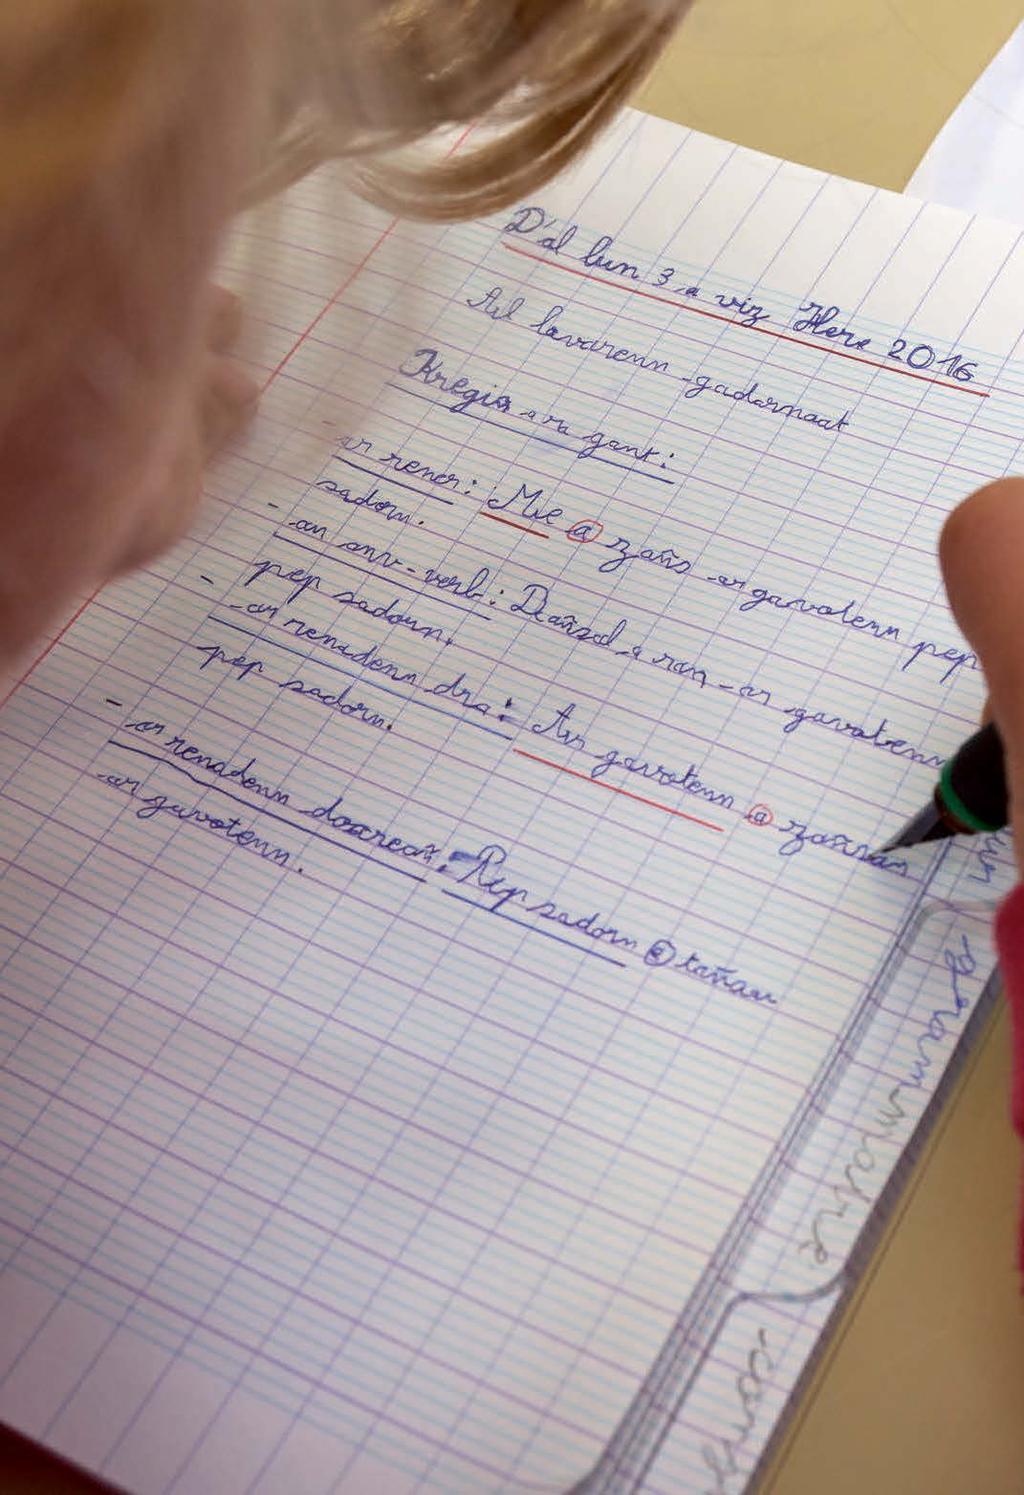 D'al lun 3 a viz Here 2016
Ar lavarenn-gadarnaat
Kregiñ a ra gant:
- ar rener: Me @ zañs ar gavotenn pep
sadorn.
- an anv-verb: Dañsal a ran ar gavotenn
pep sadorn.
- ar renadenn dra: Ar gavotenn @ zañsan
pep sadorn.
- ar renadenn doareañ: Pep sadorn @ zañsan
ar gavotenn.
grammaire